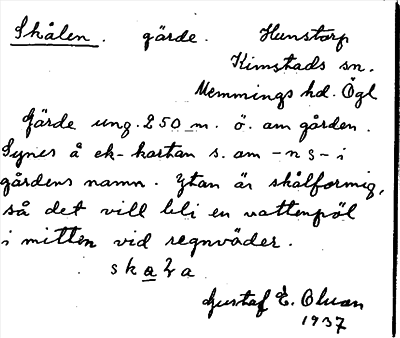 Skålen. gärde. Hunstorp
Kimstads sn.
Memmings hd. Ögl
Gärde ung. 250 m. ö. om gården.
Synes å ek-kartan s. om -ns- i
gårdens namn. Ytan är skålformig,
så det vill bli en vattenpöl
i mitten vid regnväder.
Gustaf E. Olsson
1937